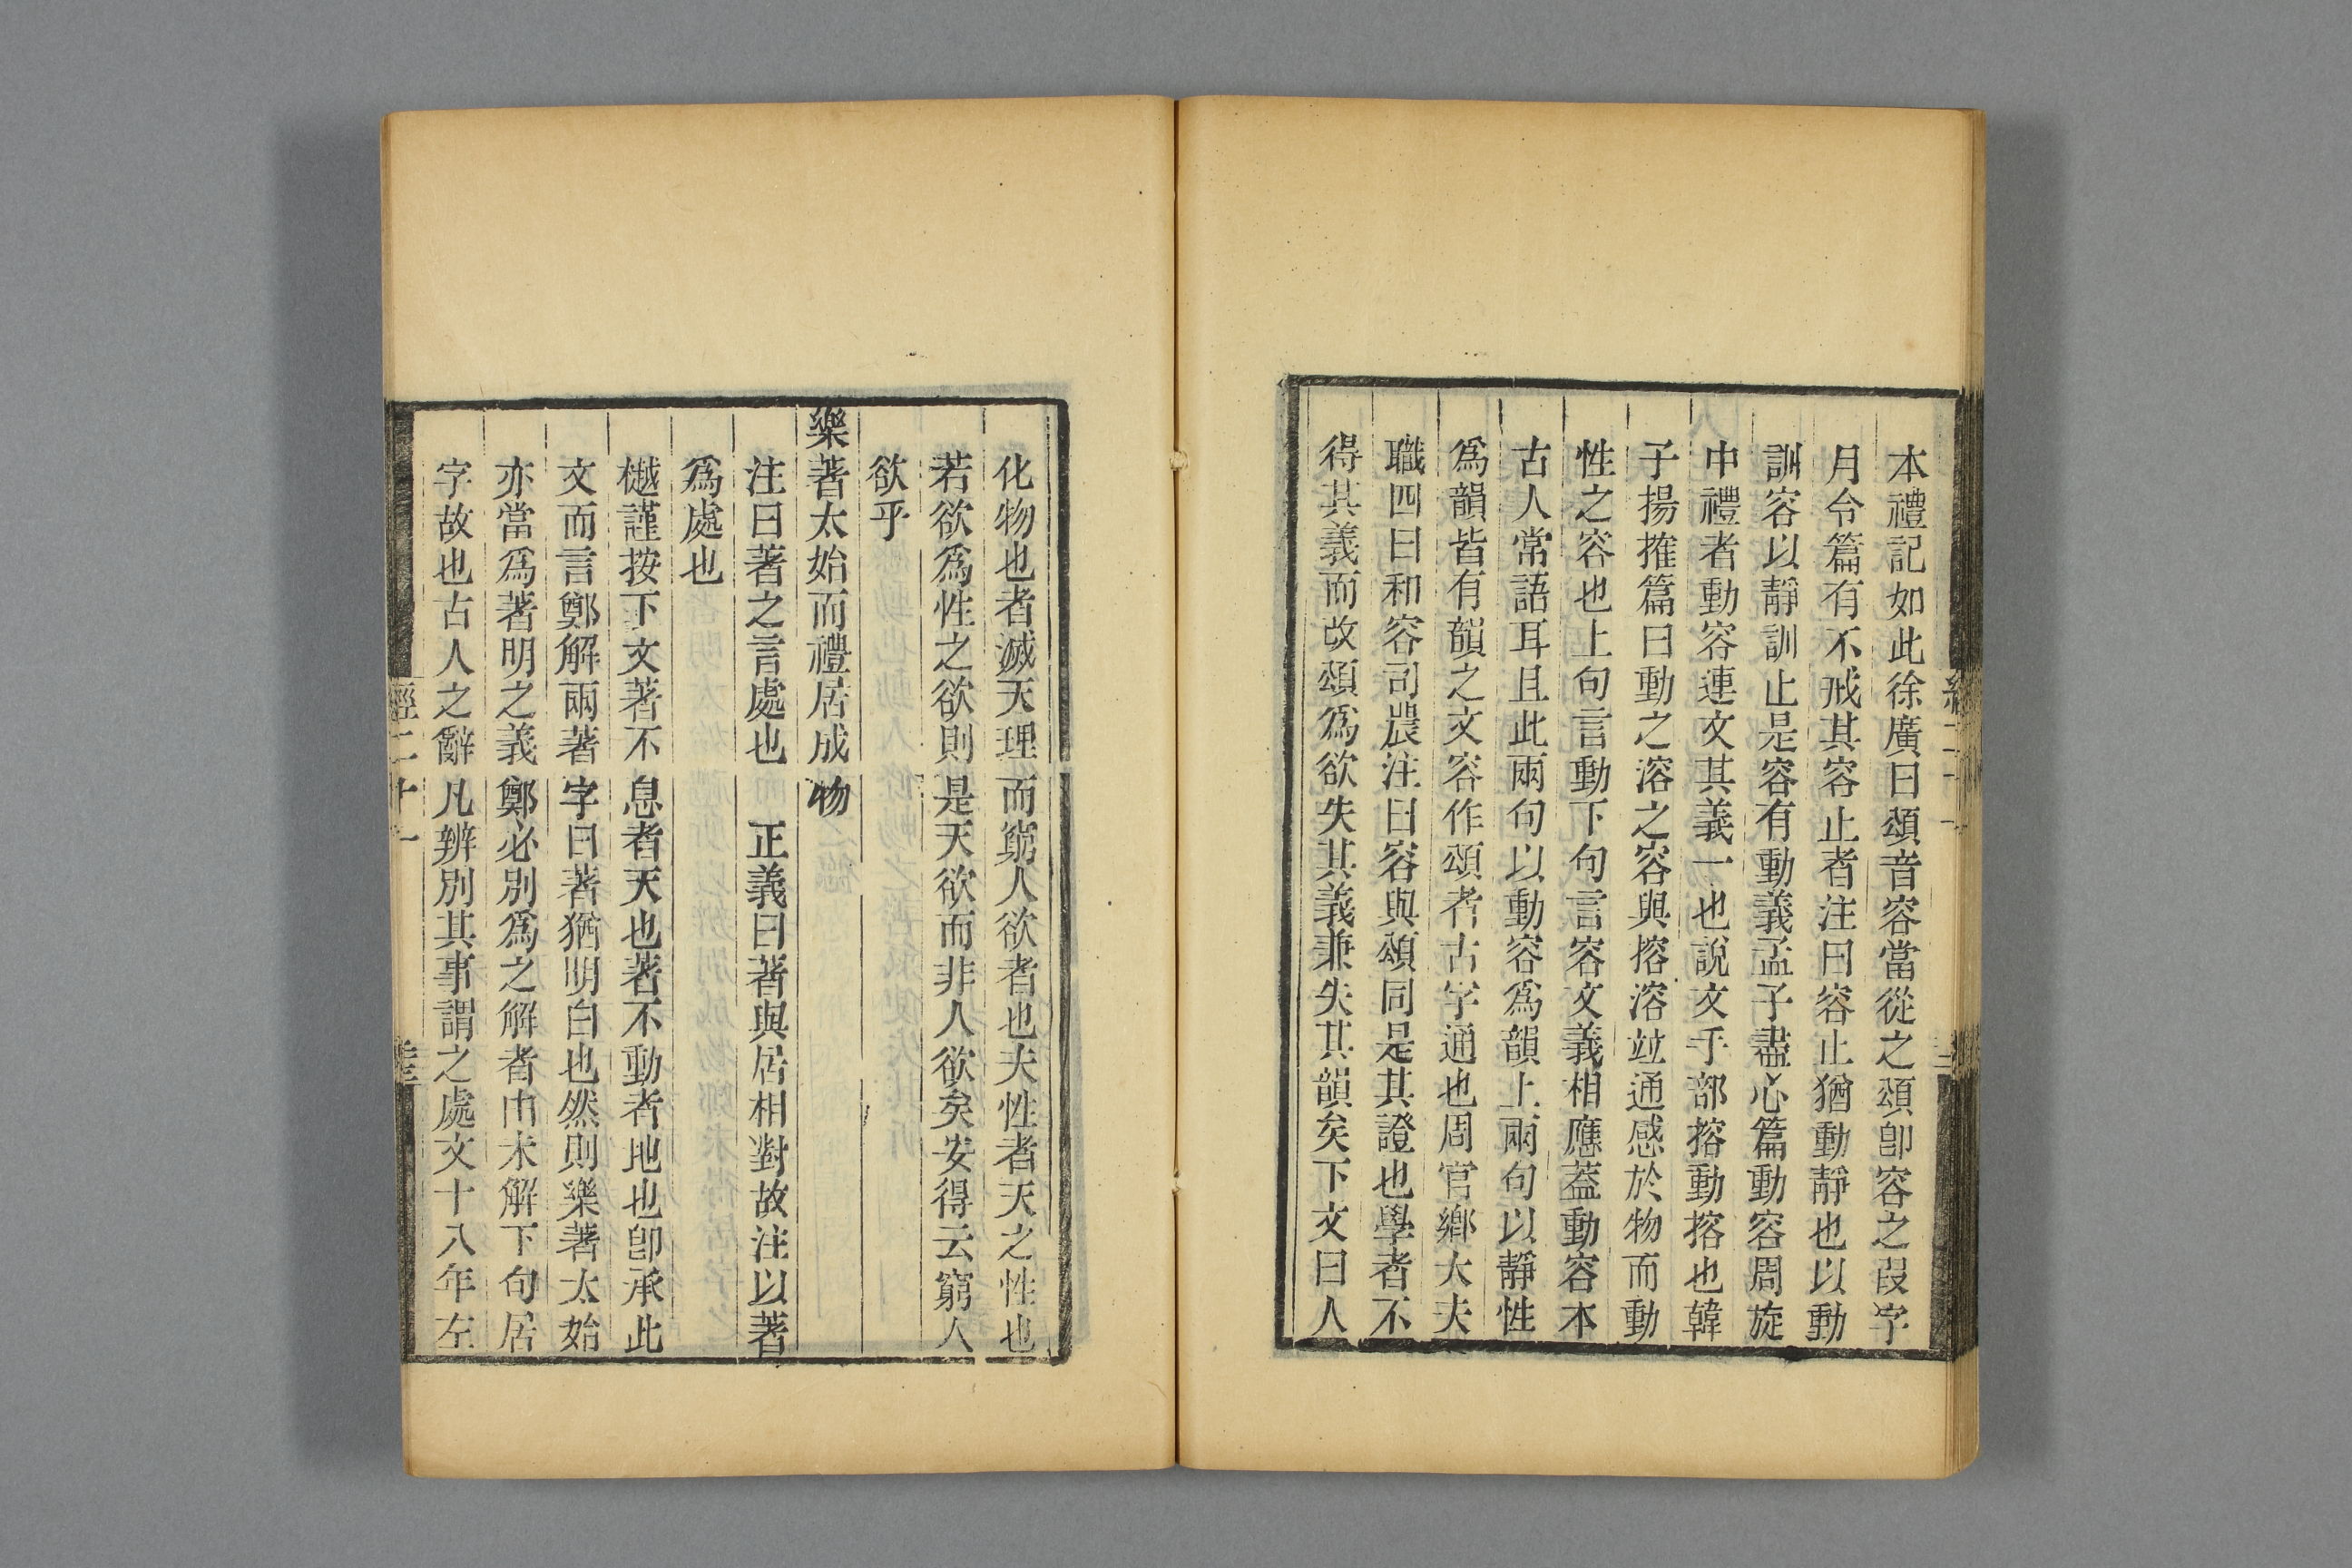 本禮記如此徐廣曰頌音容當從之頌卽容之叚字
月令篇有不戒其容止者注曰容止猶動靜也以動
訓容以靜訓止是容有動義孟子盡心篇動容周旋
中禮者動容連文其義一也說文手部搈動搈也韓
子揚搉篇曰動之溶之容與搈溶竝通感於物而動
性之容也上句言動下句言容文義相應蓋動容本
古人常語耳且此兩句以動容爲韻上兩句以靜性
爲韻皆有韻之文容作頌者古字通也周官鄉大夫
職四曰和容司農注曰容與頌同是其證也學者不
得其義而改頌爲欲失其義兼失其韻矣下文曰人
化物也者滅天理而窮人欲者也夫性者天之性也
若欲爲性之欲則是天欲而非人欲矣安得云窮人
欲乎
樂著太始而禮居成物
注曰著之言處也 正義曰著與居相對故注以著
爲處也
樾謹按下文著不息者天也著不動者地也卽承此
文而言鄭解兩著字曰著猶明白也然則樂著太始
亦當爲著明之義鄭必別爲之解者由未解下句居
字故也古人之辭凡辨別其事謂之處文十八年左
經二十一